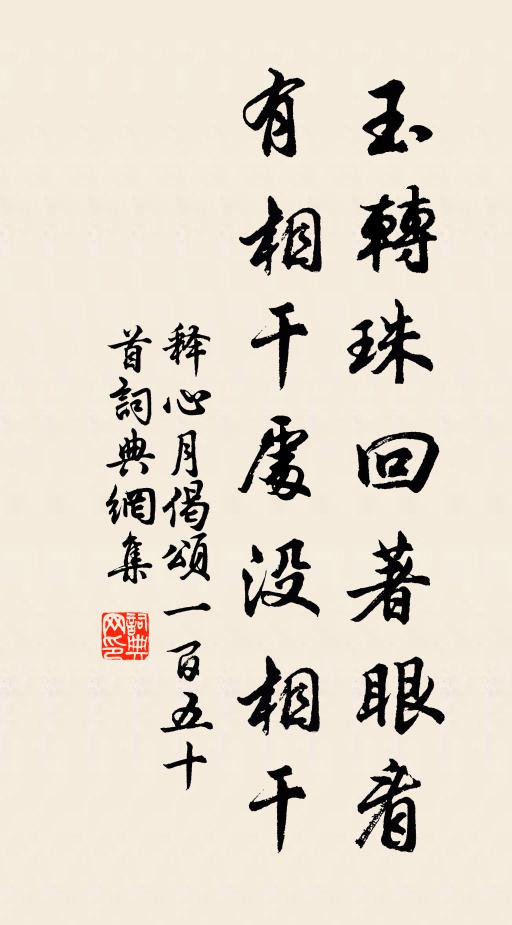 玉轉珠回著眼看
有相干處没相干
释心月偈頌一百五十
首詞典網集
詞典网印